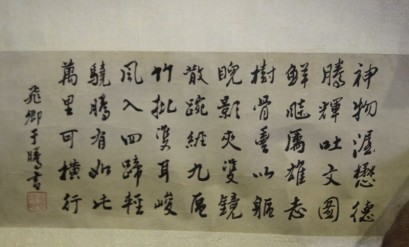 神物懋德
騰輝吐文圖
鮮飈厲雄志
樹骨以軀
睨影夾雙鏡
散經九
竹批雙耳峻
風入四蹄輕
驍騰有如此
萬里可橫行
飛卿于騰書